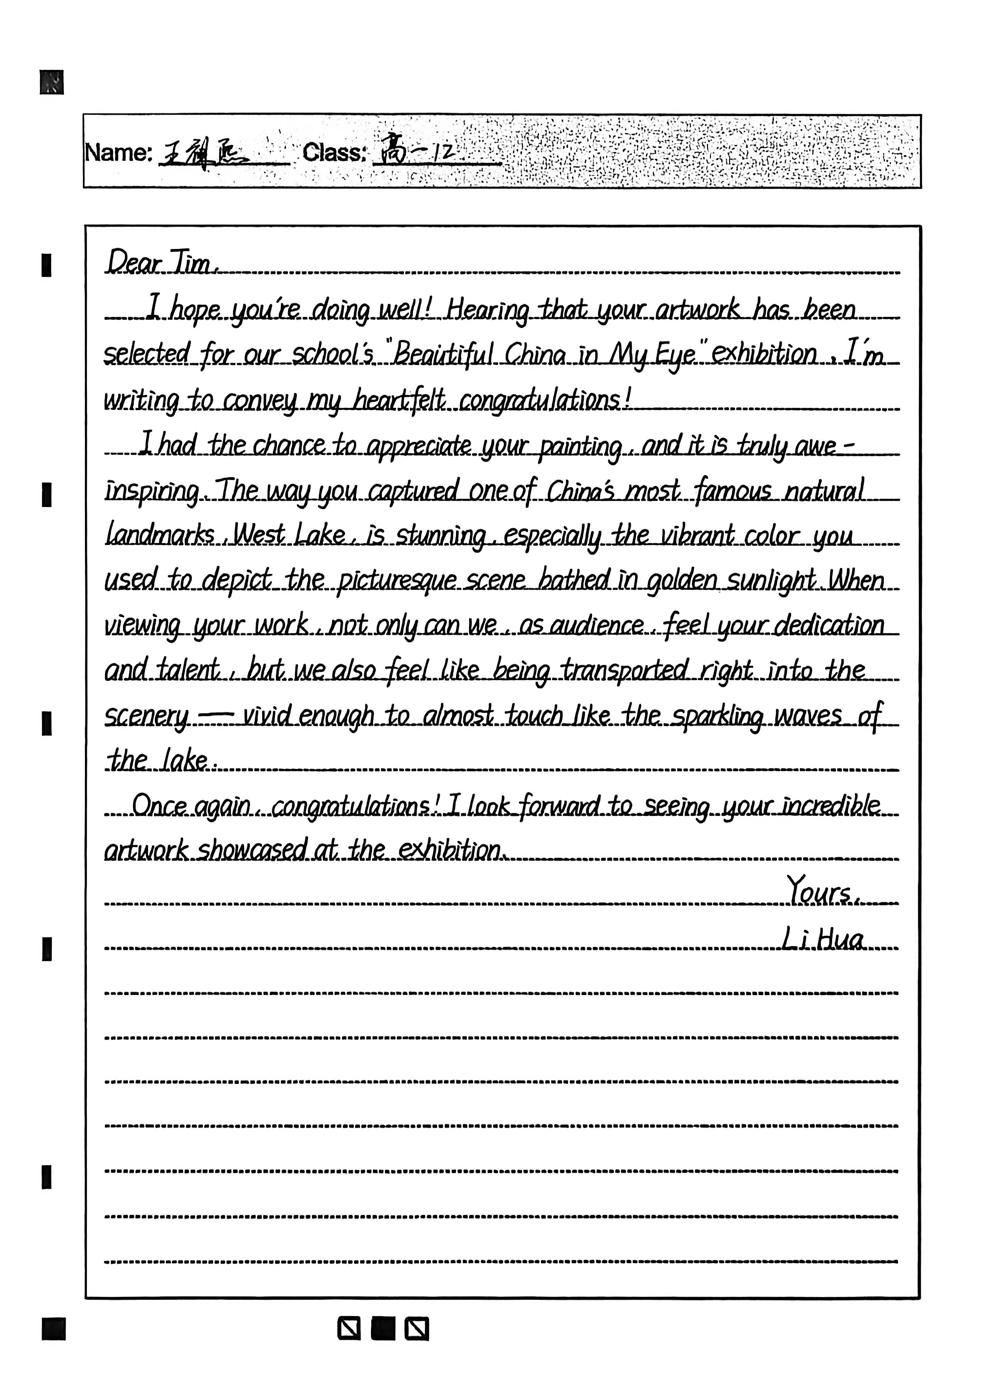 Name: 王禎熙 Class: 高一12
Dear Tim,
I hope you're doing well! Hearing that your artwork has been
selected for our school's "Beautiful China in My Eye" exhibition, I'm
writing to convey my heartfelt congratulations!
I had the chance to appreciate your painting, and it is truly awe-
inspiring. The way you captured one of China's most famous natural
landmarks, West Lake, is stunning, especially the vibrant color you
used to depict the picturesque scene bathed in golden sunlight. When
viewing your work, not only can we, as audience, feel your dedication
and talent, but we also feel like being transported right into the
scenery — vivid enough to almost touch like the sparkling waves of
the lake.
Once again, congratulations! I look forward to seeing your incredible
artwork showcased at the exhibition.
Yours,
Li Hua